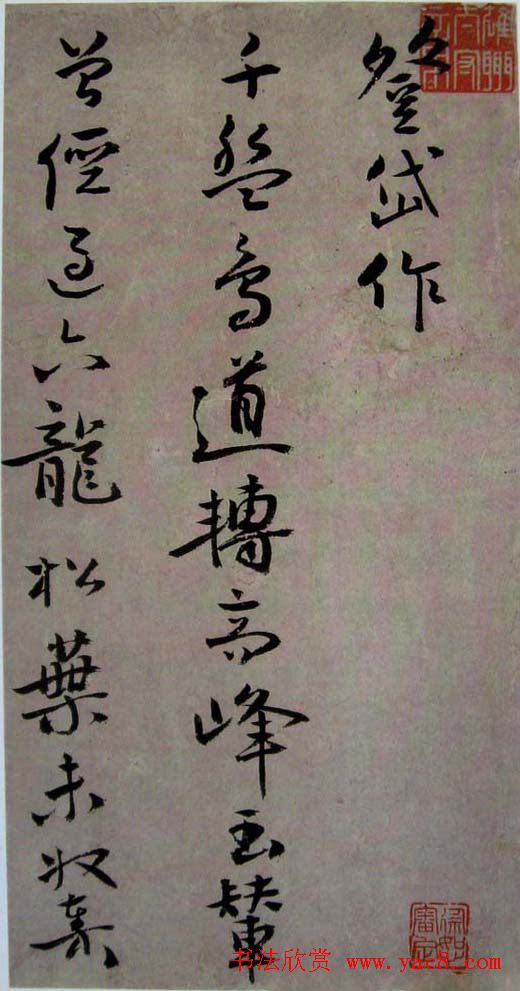 登岱作
千盤鳥道轉高峰玉輦
曾經過六龍松葉未收秦
书法欣赏 www.yac8.com